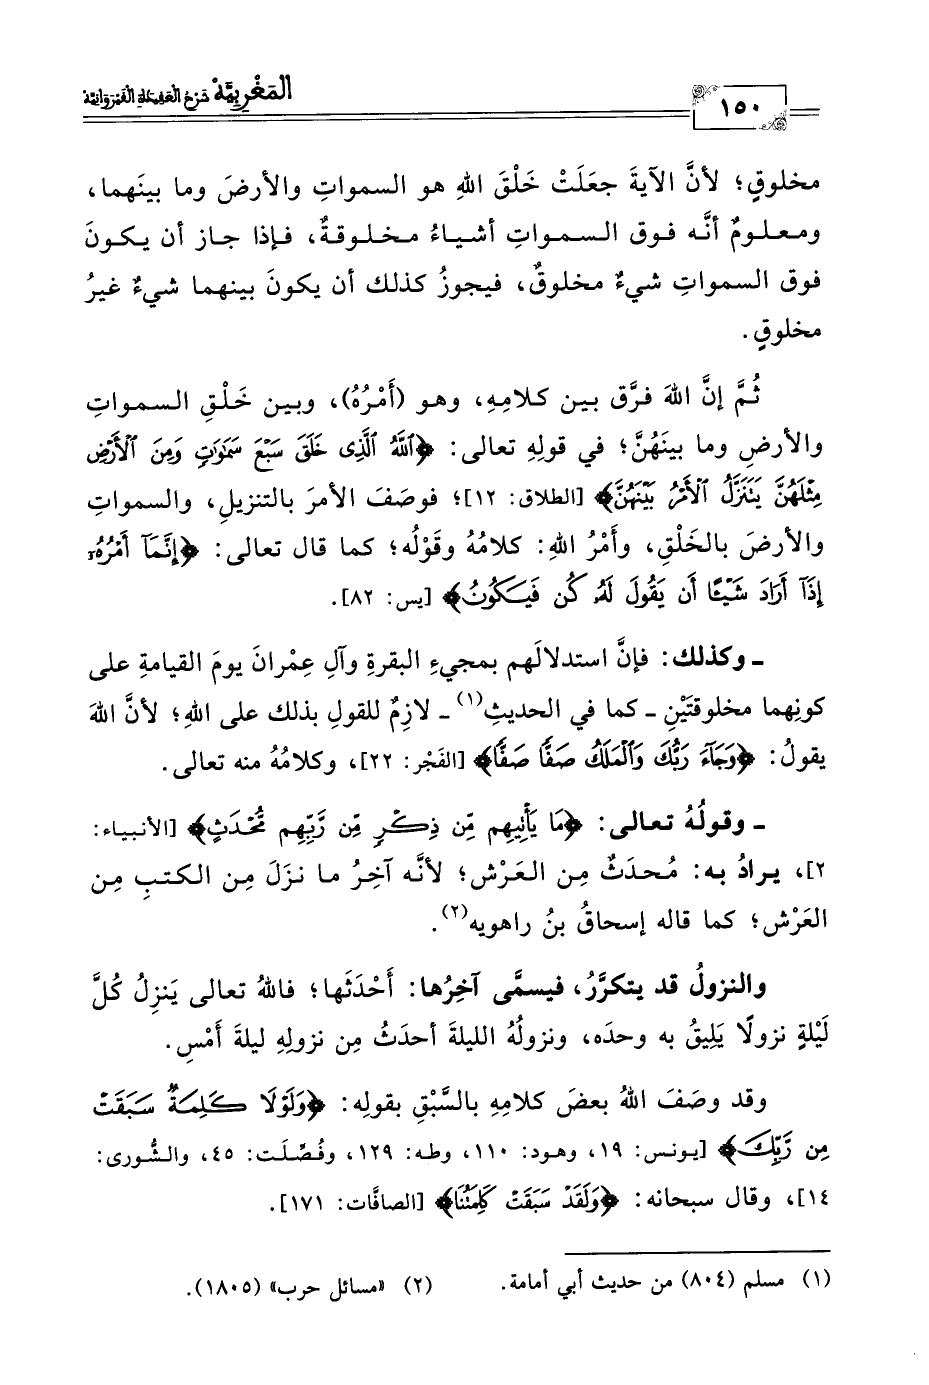 المَغْرِبِيَّةُ شَرْحُ العَقِيدَةِ القَيْرَوَانِيَّةِ
١٥٠
مخلوقٍ؛ لأنَّ الآيةَ جعَلَتْ خَلْقَ اللهِ هو السمواتِ والأرضَ وما بينَهما،
ومعلومٌ أنَّه فوق السمواتِ أشياءُ مخلوقةٌ، فإذا جاز أن يكونَ
فوق السمواتِ شيءٌ مخلوقٌ، فيجوزُ كذلك أن يكونَ بينهما شيءٌ غيرُ
مخلوقٍ.
ثُمَّ إنَّ اللهَ فرَّق بين كلامِهِ، وهو (أَمْرُهُ)، وبين خَلْقِ السمواتِ
والأرضِ وما بينَهُنَّ؛ في قولِهِ تعالى: ﴿ٱللَّهُ ٱلَّذِى خَلَقَ سَبْعَ سَمَٰوَٰتٍ وَمِنَ ٱلْأَرْضِ
مِثْلَهُنَّ يَتَنَزَّلُ ٱلْأَمْرُ بَيْنَهُنَّ﴾ [الطلاق: ١٢]؛ فوصَفَ الأمرَ بالتنزيلِ، والسمواتِ
والأرضَ بالخَلْقِ، وأَمْرُ اللهِ: كلامُهُ وقَوْلُه؛ كما قال تعالى: ﴿إِنَّمَآ أَمْرُهُۥٓ
إِذَآ أَرَادَ شَيْـًٔا أَن يَقُولَ لَهُۥ كُن فَيَكُونُ﴾ [يس: ٨٢].
ـ وكذلك: فإنَّ استدلالَهم بمجيءِ البقرةِ وآلِ عِمْرانَ يومَ القيامةِ على
كونِهما مخلوقتَيْنِ ـ كما في الحديثِ(١) ـ لازِمٌ للقولِ بذلك على اللهِ؛ لأنَّ اللهَ
يقولُ: ﴿وَجَآءَ رَبُّكَ وَٱلْمَلَكُ صَفًّا صَفًّا﴾ [الفَجْر: ٢٢]، وكلامُهُ منه تعالى.
ـ وقولُهُ تعالى: ﴿مَا يَأْتِيهِم مِّن ذِكْرٍ مِّن رَّبِّهِم مُّحْدَثٍ﴾ [الأنبياء:
٢]، يرادُ به: مُحدَثٌ مِن العَرْش؛ لأنَّه آخِرُ ما نزَلَ مِن الكتبِ مِن
العَرْش؛ كما قاله إسحاقُ بنُ راهويه(٢).
والنزولُ قد يتكرَّرُ، فيسمَّى آخِرُها: أَحْدَثَها؛ فاللهُ تعالى يَنزِلُ كُلَّ
لَيْلةٍ نزولًا يَلِيقُ به وحدَه، ونزولُهُ الليلةَ أحدَثُ مِن نزولِهِ ليلةَ أَمْسِ.
وقد وصَفَ اللهُ بعضَ كلامِهِ بالسَّبْقِ بقولِه: ﴿وَلَوْلَا كَلِمَةٌ سَبَقَتْ
مِن رَّبِّكَ﴾ [يونس: ١٩، وهود: ١١٠، وطه: ١٢٩، وفُصِّلَت: ٤٥، والشُّورى:
١٤]، وقال سبحانه: ﴿وَلَقَدْ سَبَقَتْ كَلِمَتُنَا﴾ [الصافَّات: ١٧١].
(١) مسلم (٨٠٤) من حديث أبي أمامة.
(٢) «مسائل حرب» (١٨٠٥).